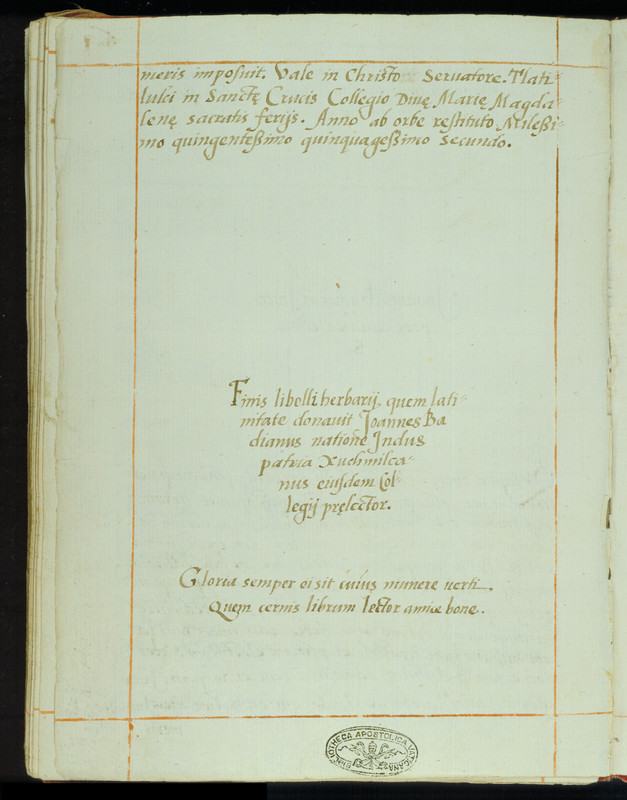 meris imposuit. Vale in Christo Seruatore. Tlati-
lulci in Sanctę Crucis Collegio Diuę Marię Magda-
lenę sacratis ferijs. Anno ab orbe restituto Mileßi-
mo quingenteßimo quinquageßimo secundo.
Finis libelli herbarij, quem lati-
nitate donauit Joannes Ba
dianus natione Jndus
patria Xuchimilca-
nus eiusdem Col-
legij pręlector.
Gloria semper ei sit cuius munere uerti
Quem cernis librum lector amice bone.
BIBLIOTHECA APOSTOLICA VATICANA